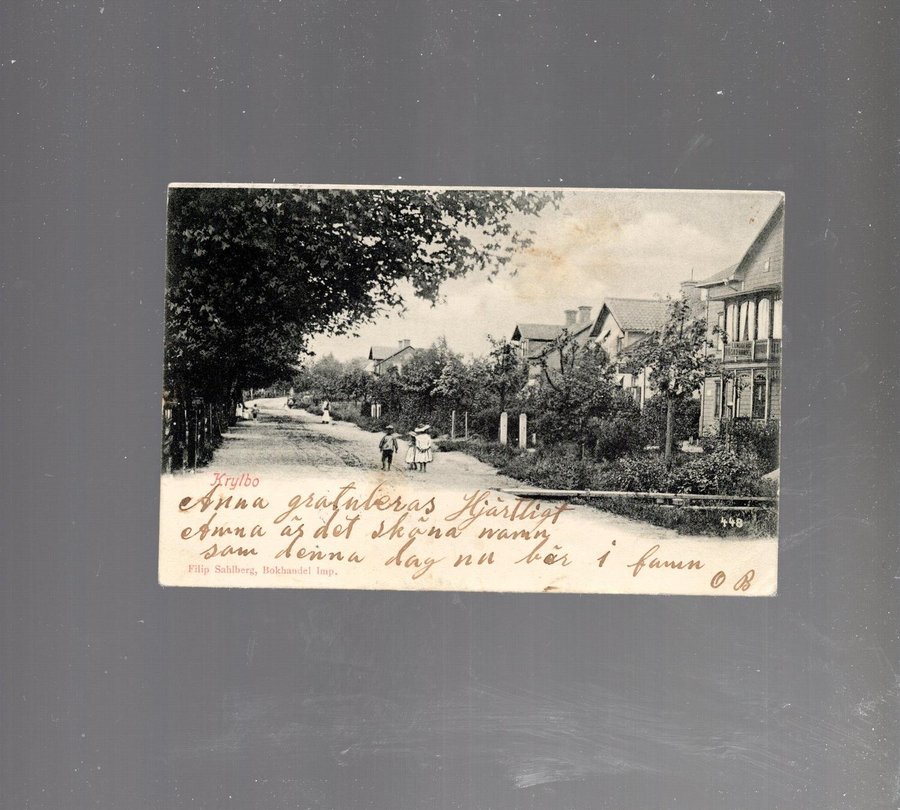 Krylbo
Anna gratuleras Hjärtligt
Anna är det sköna namn
som denna dag nu bär i famn
Filip Sahlberg, Bokhandel Imp.
O B
448